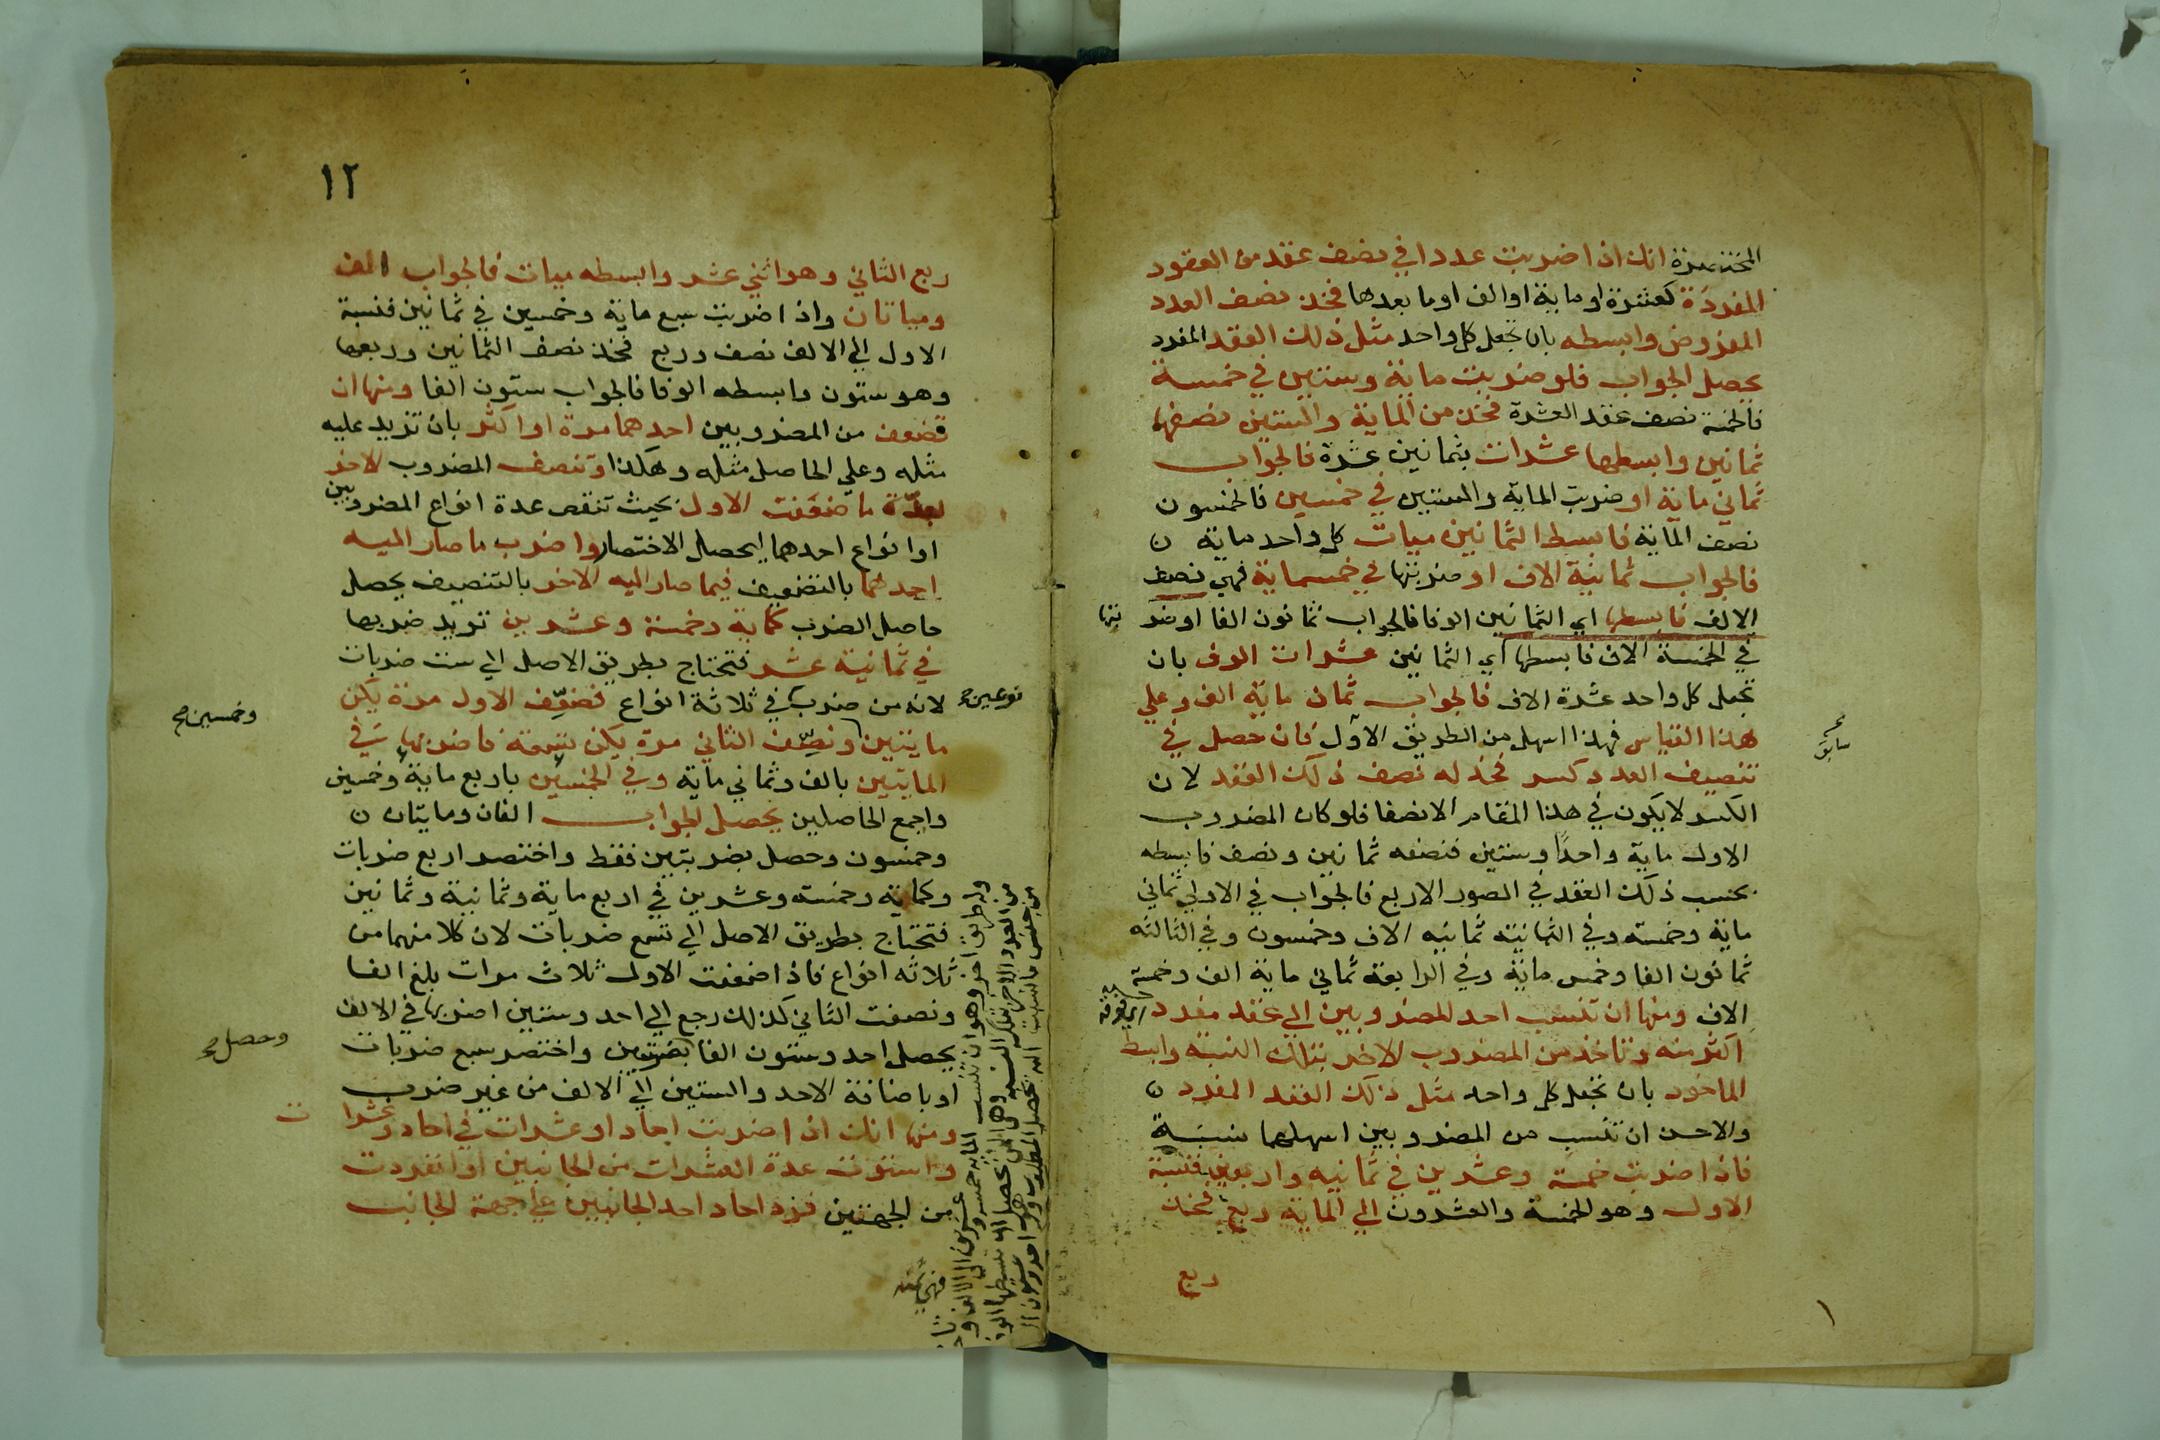 المختصرة انك اذا ضربت عددا في نصف عقد من العقود
المفردة كعشرة او ماية او الف او ما بعدها فخذ نصف العدد
المفروض وابسطه بان تجعل كل واحد مثل ذلك العقد المفرد
يحصل الجواب فلو ضربت ماية وستين في خمسة
فالخمسة نصف عقد العشرة فخذ من الماية والستين نصفها
ثمانين وابسطها عشرات بثمانين عشرة فالجواب
ثماني ماية او ضربت الماية والستين في خمسين فالخمسون
نصف الماية فابسط الثمانين ميات كل واحد ماية ن
فالجواب ثمانية الاف او ضربتها في خمسماية فهي نصف
الالف فابسطها اي الثمانين الوفا فالجواب ثمانون الفا او ضر بتها
في الخمسة الاف فابسطها اي الثمانين عشرات الوف بان
تجعل كل واحد عشرة الاف فالجواب ثمان ماية الف وعلي
هذا القياس فهذا اسهل من الطريق الاول فان حصل في
سابق
تنصيف العدد كسر فخذ له نصف ذلك العقد لان
الكسر لا يكون في هذا المقام الا نصفا فلو كان المضروب
الاول ماية واحدا وستين فنصفه ثمانين ونصف فابسطه
بحسب ذلك العقد في الصور الاربع فالجواب في الاولي ثماني
ماية وخمسة وفي الثانية ثمانيه الاف وخمسون وفي الثالثه
ثمانون الفا وخمس ماية وفي الرابعة ثماني ماية الف وخمسة
الاف ومنها ان تنسب احد المضروبين الي عقد مفرد اي فوقه
اكثر منه وتاخذ من المضروب الاخر بتلك النسبة وابسط
الماخود بان تجعل كل واحد مثل ذلك العقد المفرد ن
والاحسن ان تنسب من المضروبين اسهلهما نسبة
فاذا ضربت خمسة وعشرين في ثمانيه واربعين فنسبة
الاول وهو الخمسة والعشرون الي الماية ربع فخذ
ربع
١٢
ربع الثاني وهو اثني عشر وابسطه ميات فالجواب الف
ومياتان واذا ضربت سبع ماية وخمسين في ثمانين فنسبة
الاول الي الالف نصف وربع فخذ نصف الثمانين وربعها
وهو ستون وابسطه الوفا فالجواب ستون الفا ومنها ان
تضعف من المضروبين احدهما مرة او اكثر بان تزيد عليه
مثله وعلي الحاصل مثله وهكذا وتنصف المضروب الاخر
بعدّة ما ضعفت الاول بحيث تنقص عدة انواع المضروبين
او انواع احدهما ليحصل الاختصار واضرب ما صار اليه
احدهما بالتضعيف فيما صار اليه الاخر بالتنصيف يحصل
حاصل الضرب كماية وخمسة وعشرين تريد ضربها
في ثمانية عشر فتحتاج بطريق الاصل الي ست ضربات
لانه من ضرب في ثلاثة انواع فضعِّف الاول مرة يكن
نوعين صح
مايتين ونصِّف الثاني مرة يكن تسعة فاضربها في
وخمسين صح
المايتين بالف وثماني ماية وفي الخمسين باربع ماية وخمسين
واجمع الحاصلين يحصل الجواب الفان ومايتان ن
وخمسون وحصل بضربتين فقط واختصر اربع ضربات
وكماية وخمسة وعشرين في اربع ماية وثمانية وثمانين
فتحتاج بطريق الاصل الي تسع ضربات لان كلا منهما من
ثلاثه انواع فاذا ضعفت الاول ثلاث مرات بلغ الفا
ونصفت الثاني كذلك رجع الي احد وستين اضربها في الالف
يحصل احد وستون الفا بضربتين واختصر سبع ضربات
وحصل صح
او باضافة الاحد والستين الي الالف من غير ضرب
ومنها انك اذا ضربت احاد او عشرات في احاد وعشرات
واستوت عدة العشرات من الجانبين او انفردت
من الجهتين فزد احاد احد الجانبين علي جهة الجانب